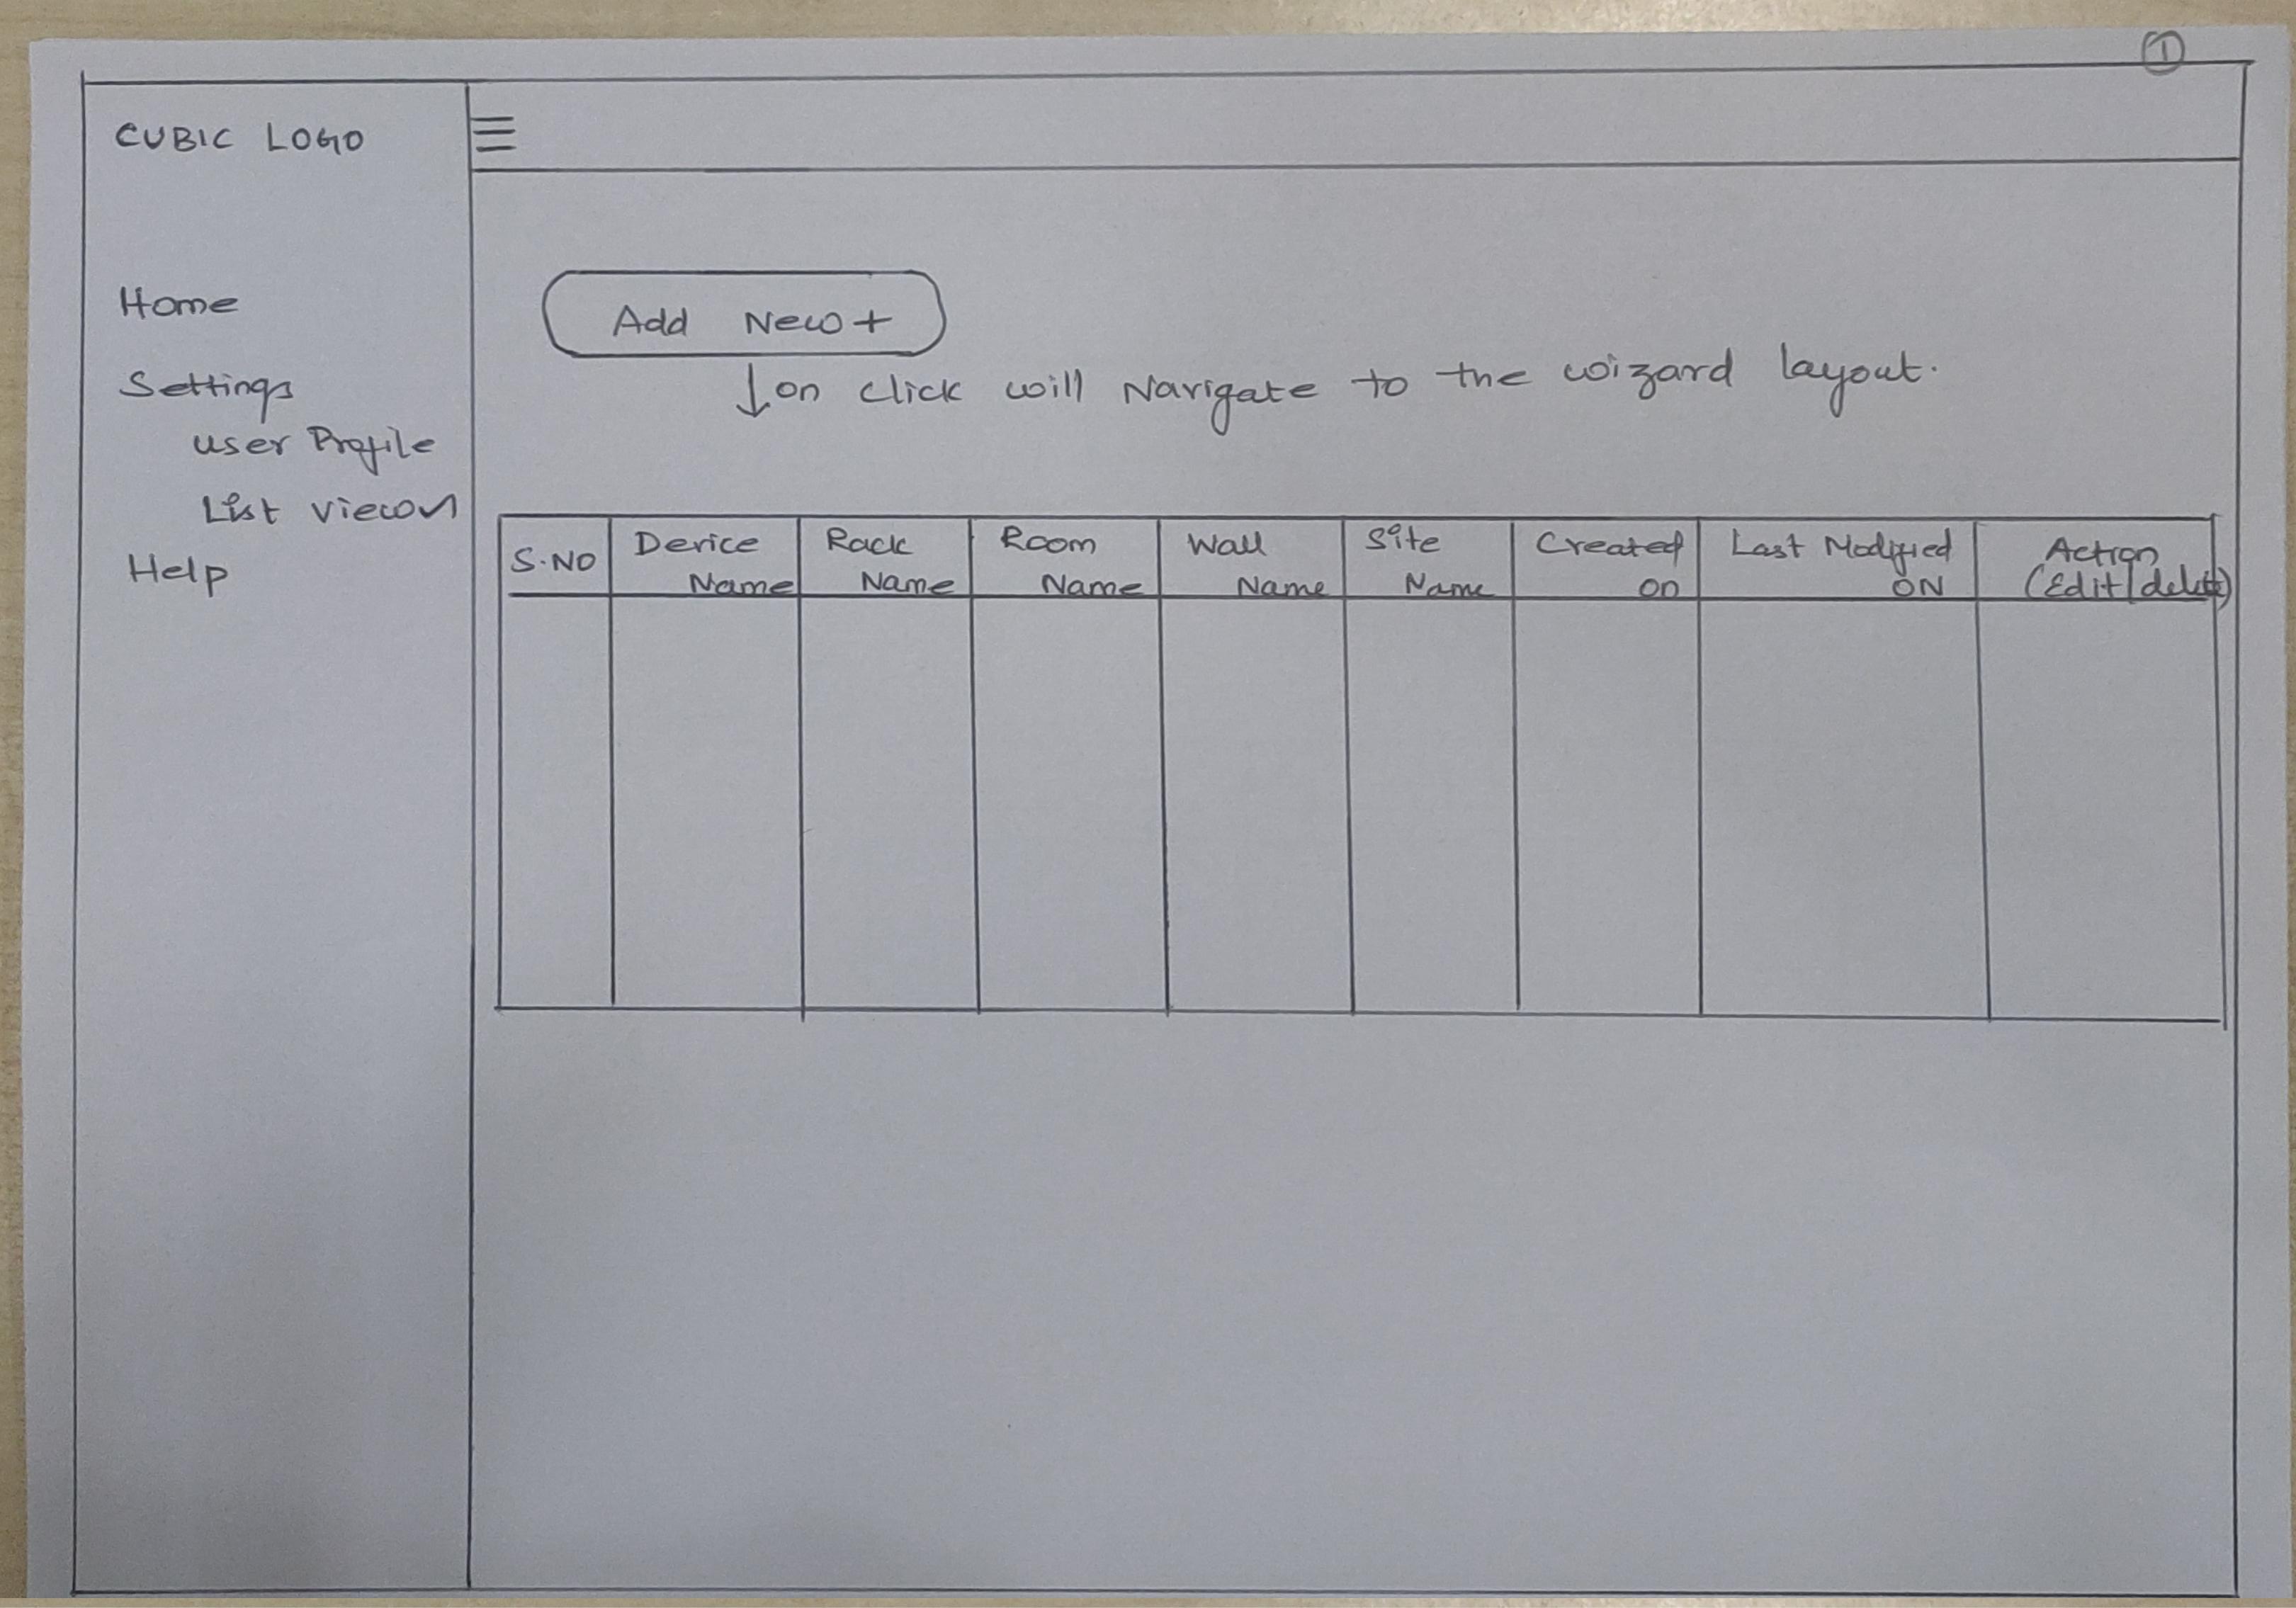 1
CUBIC LOGO
Home
Settings
User Profile
List View
Help
Add New +
↓ on click will Navigate to the wizard layout.
S.NO
Device
Name
Rack
Name
Room
Name
Wall
Name
Site
Name
Created
on
Last Modified
ON
Action
(Edit/delete)